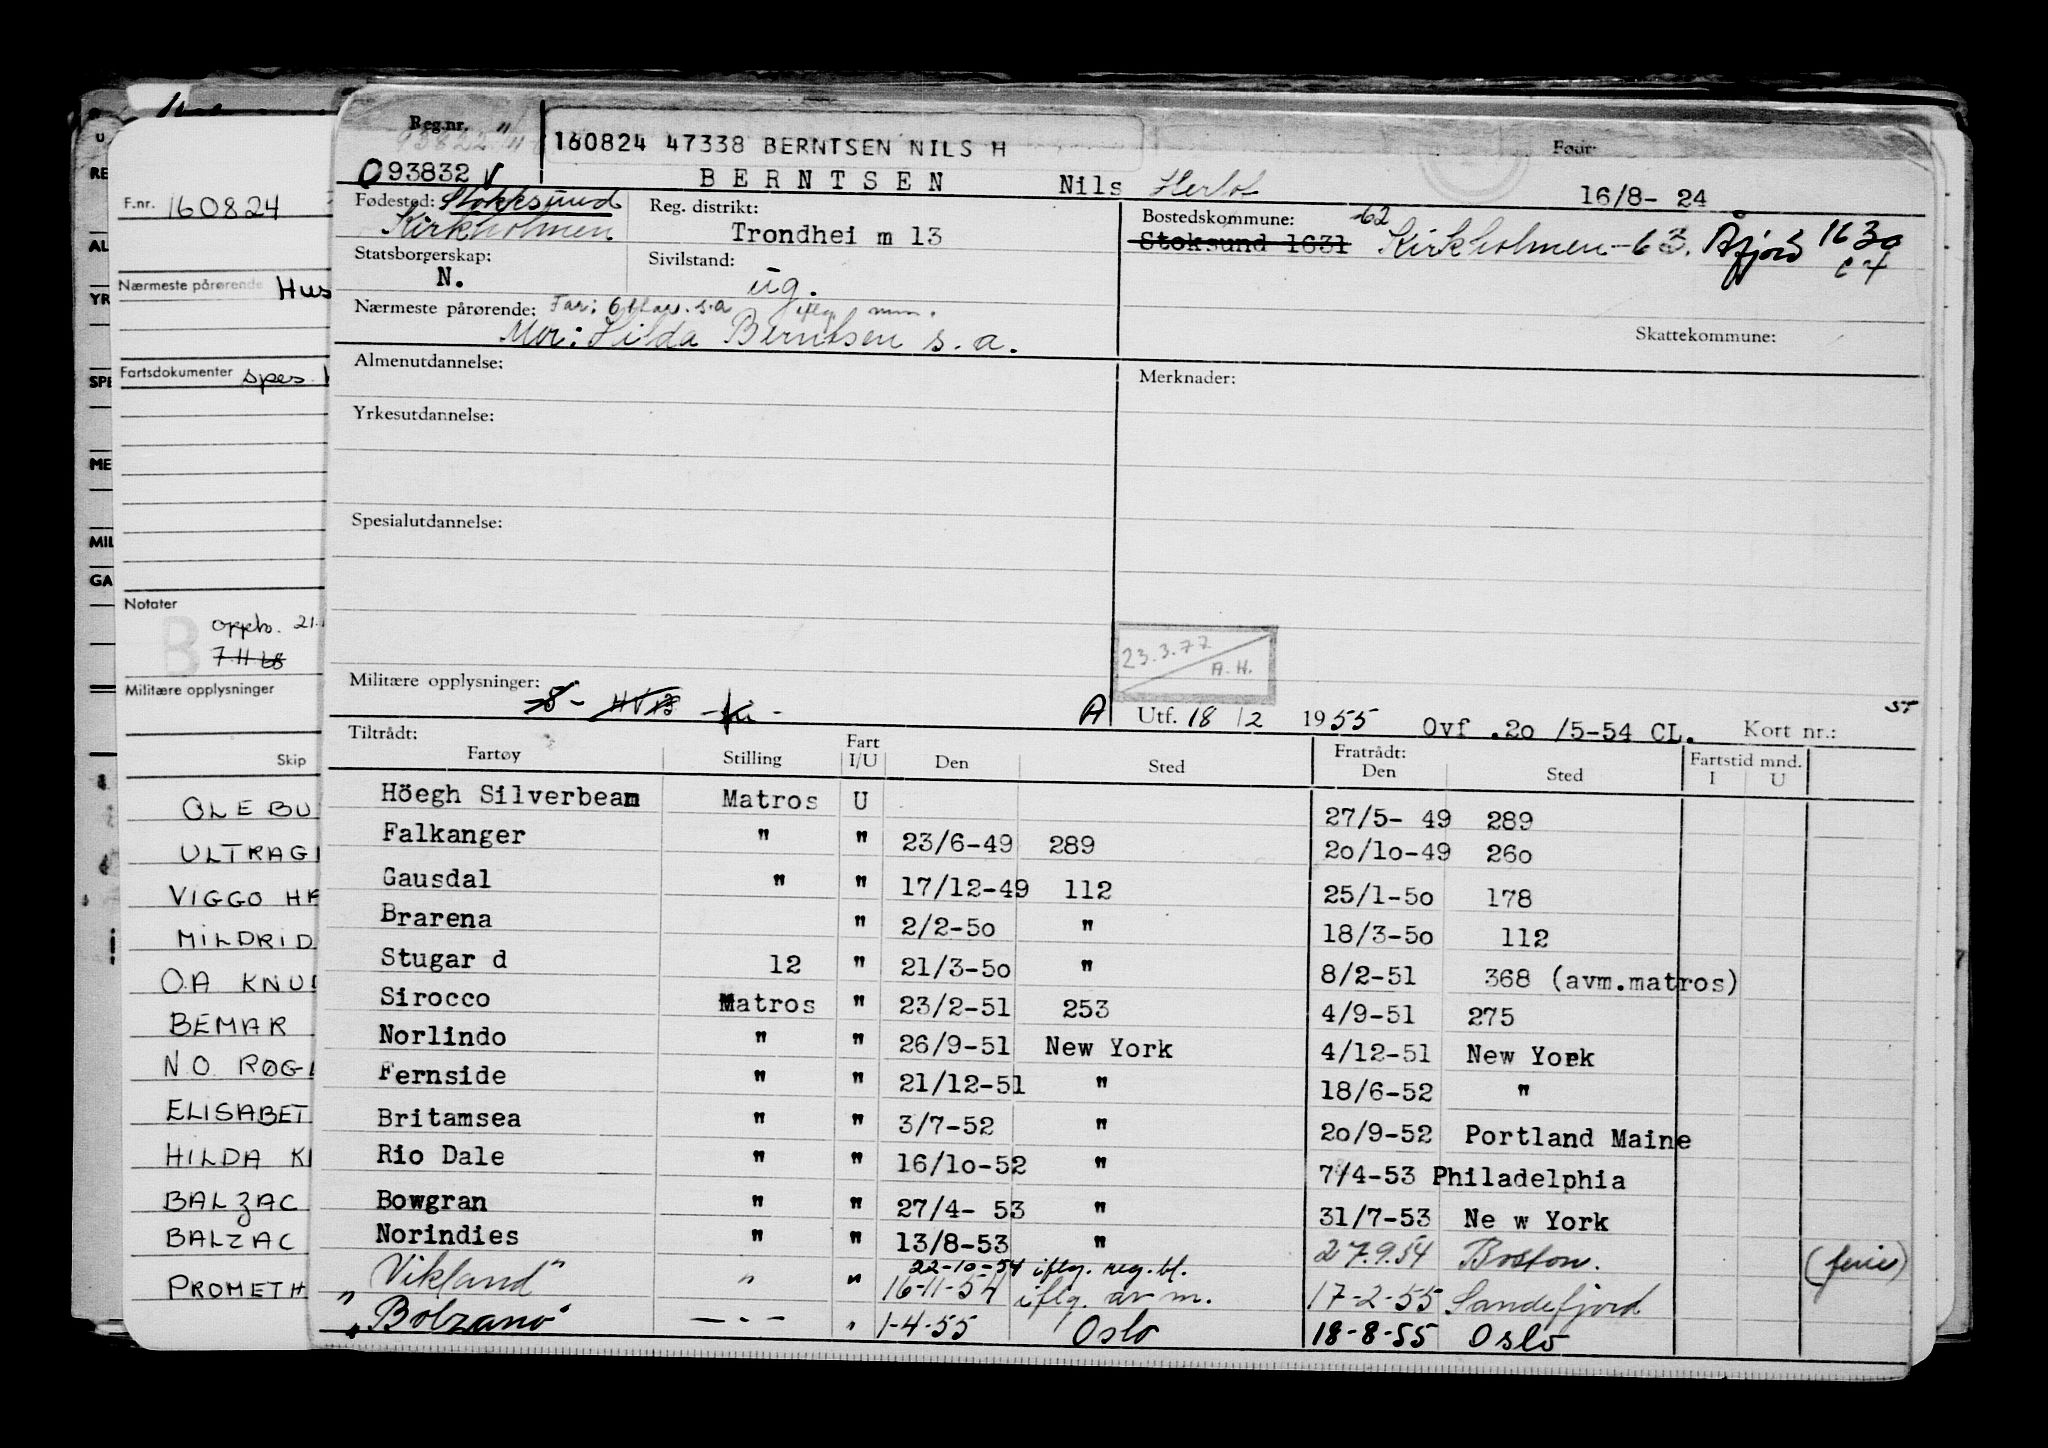 Reg.nr.
093832 V
160824 47338 BERNTSEN NILS H
Født:
BERNTSEN Nils 16/8- 24
Fødested: Stokksund
Kirkholmen
Reg. distrikt:
Trondhei m 13
Bostedskommune: -62
Stoksund 1631 Kirkholmen-63. Åfjord 1630
Statsborgerskap:
N.
Sivilstand:
ug.
Nærmeste pårørende: Far: s.a
Mor: Hilda Berntsen s.a.
Skattekommune:
Almenutdannelse:
Merknader:
Yrkesutdannelse:
Spesialutdannelse:
23.3.77
A.H.
Militære opplysninger:
A Utf. 18 /2 1955 Ovf .2o /5-54 CL. Kort nr.:
Tiltrådt:
Fartøy Stilling Fart I/U Den Sted Fratrådt: Den Sted Fartstid mnd. I U
Höegh Silverbeam Matros U 27/5- 49 289
Falkanger " " 23/6-49 289 2o/1o-49 26o
Gausdal " " 17/12-49 112 25/1-5o 178
Brarena " 2/2-5o " 18/3-5o 112
Stugar d 12 " 21/3-5o " 8/2-51 368 (avm.matros)
Sirocco Matros " 23/2-51 253 4/9-51 275
Norlindo " " 26/9-51 New York 4/12-51 New York
Fernside " " 21/12-51 " 18/6-52 "
Britamsea " " 3/7-52 " 2o/9-52 Portland Maine
Rio Dale " " 16/1o-52 " 7/4-53 Philadelphia
Bowgran " " 27/4- 53 " 31/7-53 Ne w York
Norindies " " 13/8-53 " 27.9.54 Boston. (ferie)
22-10-54 iflg. reg.bl.
Vikland " " 16-11-54 iflg. av m. 17-2-55 Sandefjord
" Bolzano " -.- " 1-4-55 Oslo 18-8-55 Oslo
F.nr. 160824
Nærmeste pårørende Hus
Fartsdokumenter spes.
Notater
B
oppb. 21.
7.11.68
Militære opplysninger
Skip
OLE BU
ULTRAG
VIGGO H
MILDRID
O.A KNU
BEMAR
N.O. RØG
ELISABET
HILDA K
BALZAC
BALZAC
PROMETH
U
RE
AL
YR
SPE
ME
MIL
GA